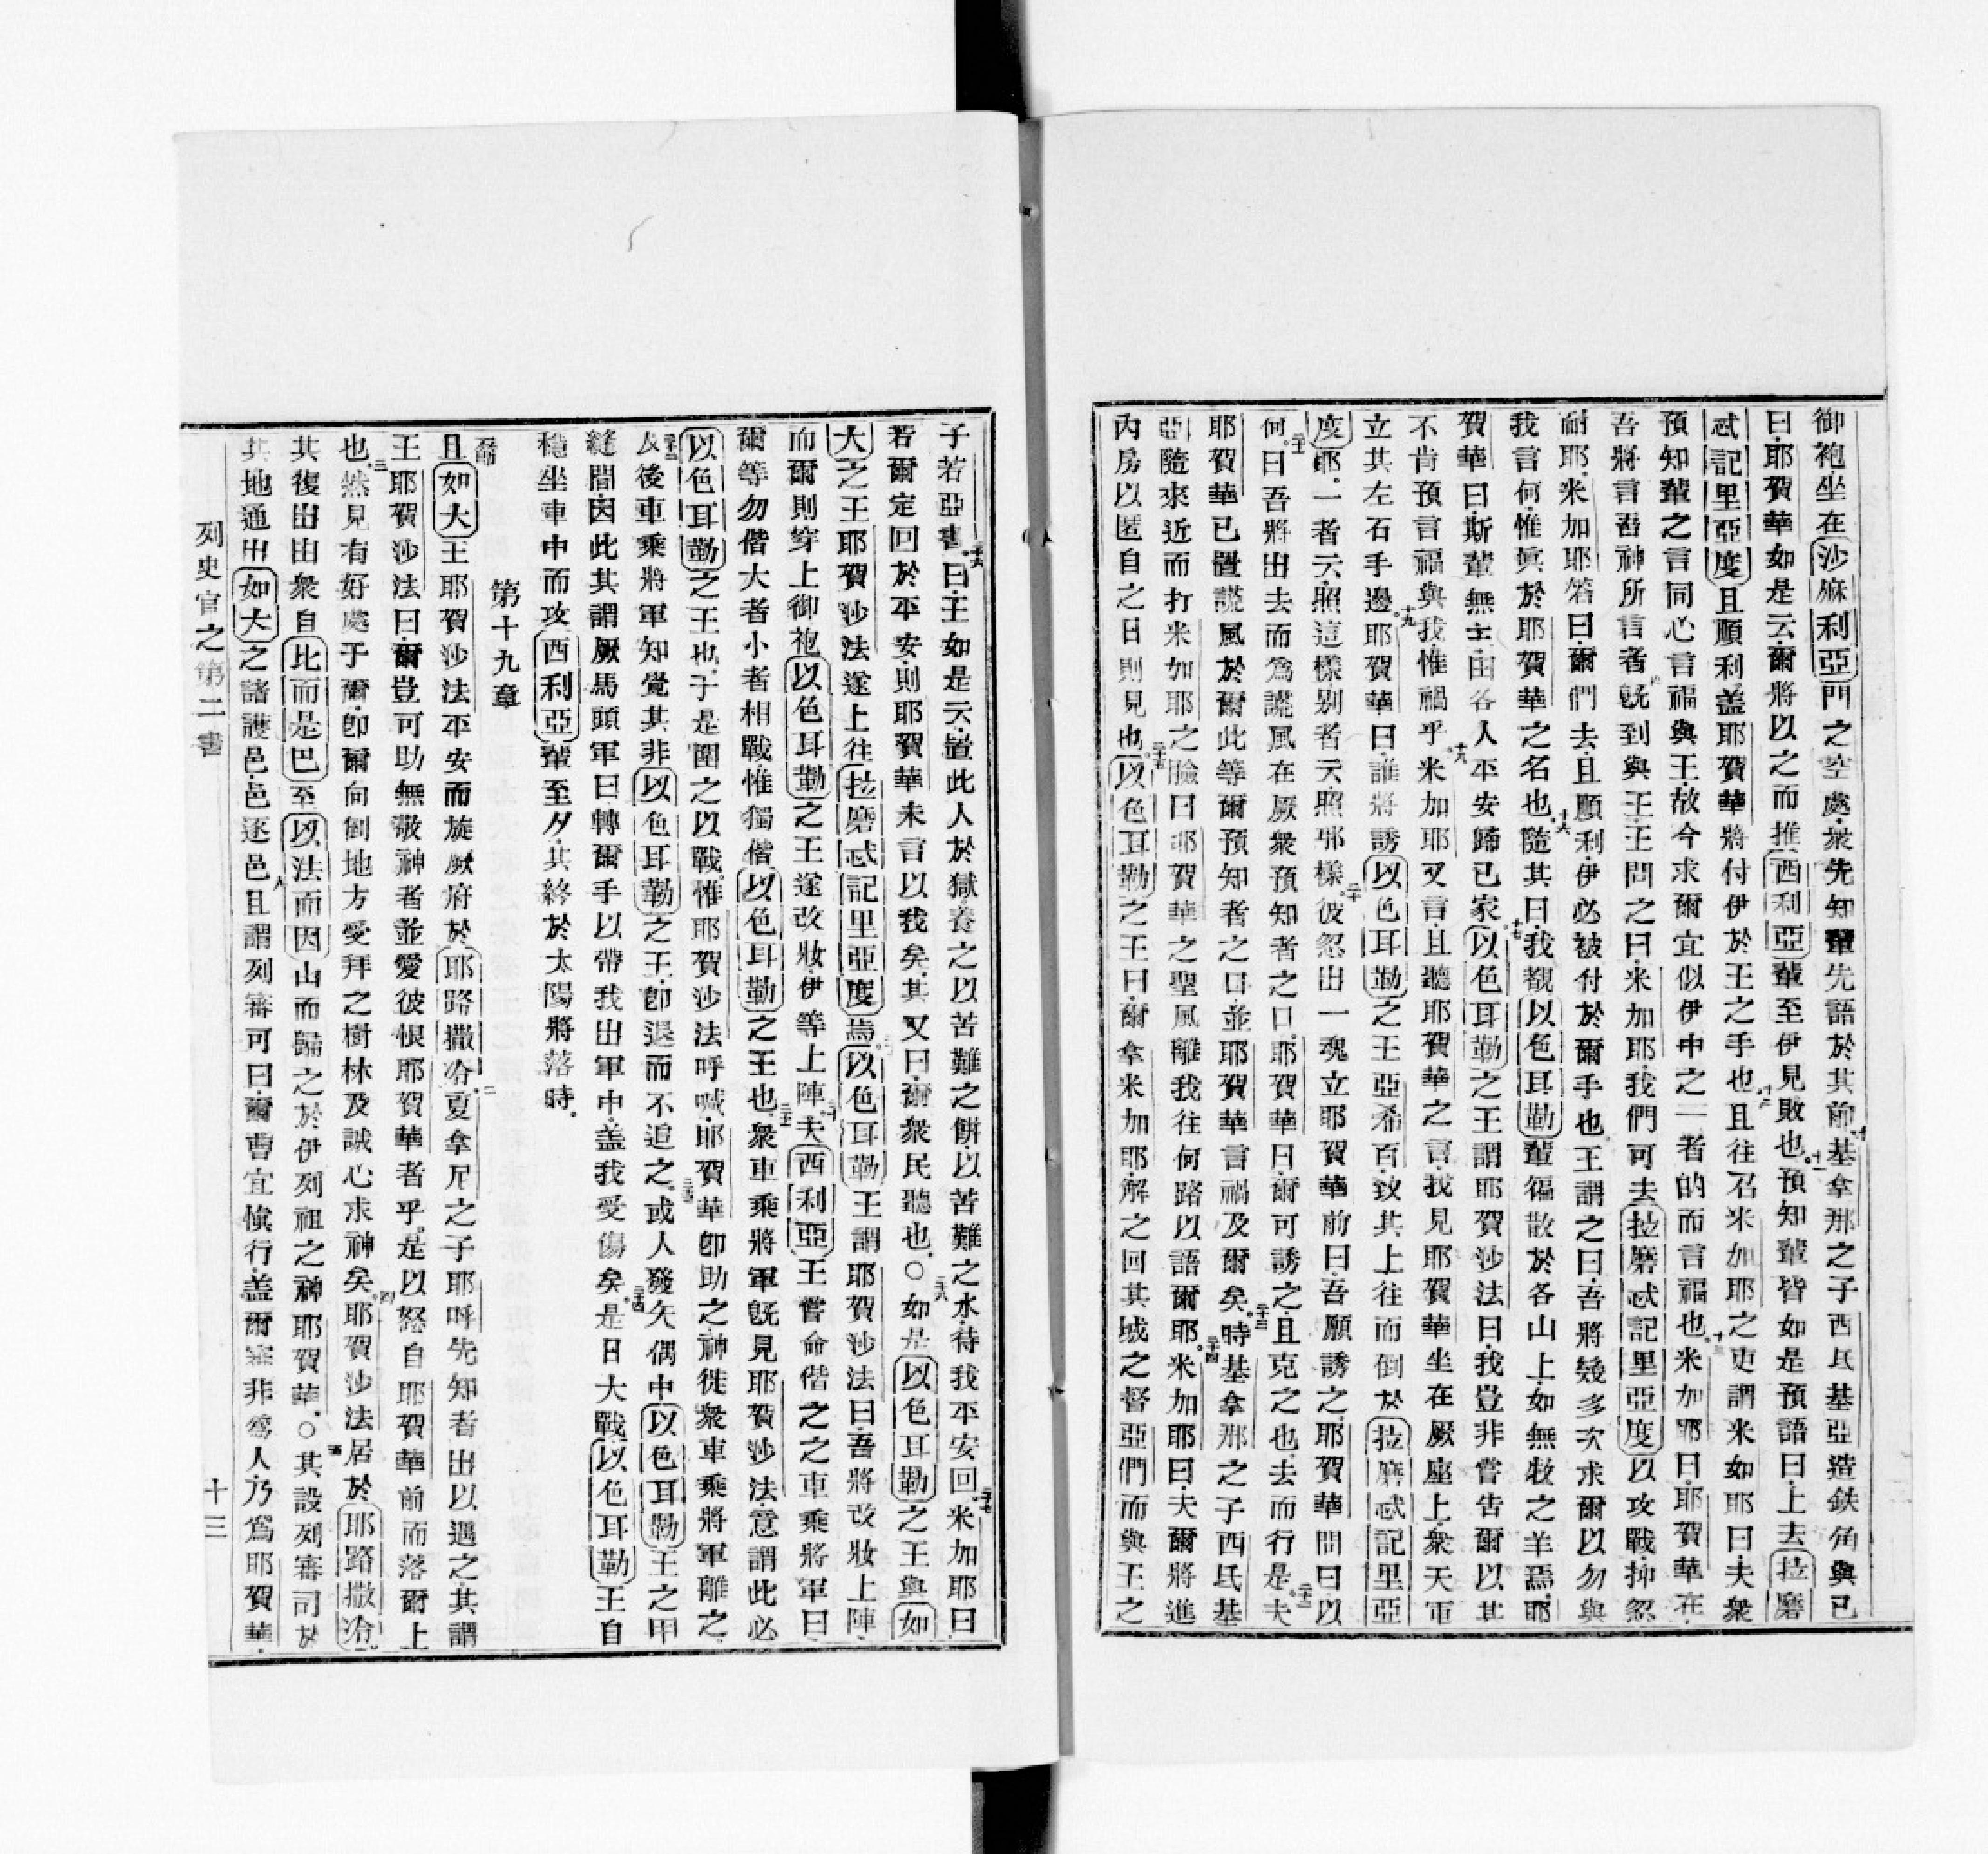 御袍坐在沙麻利亞門之空處衆先知輩先語於其前十基拿那之子西氐基亞造鉄角與已
曰耶賀華如是云爾將以之而推西利亞輩至伊見敗也十一預知輩皆如是預語曰上去拉磨
忒記里亞度且順利盖耶賀華將付伊於王之手也十二且往召米加耶之吏謂米如耶曰夫衆
預知輩之言同心言福與王故今求爾宜似伊中之一者的而言福也十三米加耶曰耶賀華在
吾將言吾神所言者既到與王王問之曰米加耶我們可去拉磨忒記里亞度以攻戰抑忽
耐耶米加耶答曰爾們去且順利伊必被付於爾手也王謂之曰吾將幾多次求爾以勿與
我言何惟眞於耶賀華之名也十六隨其曰我覩以色耳勒輩徧散於各山上如無牧之羊焉耶
賀華曰斯輩無主由各人平安歸已家十七以色耳勒之王謂耶賀沙法曰我豈非嘗告爾以其
不肯預言福與我惟禍乎十八米加耶又言且聽耶賀華之言我見耶賀華坐在厥座上衆天軍
立其左右手邊十九耶賀華曰誰將誘以色耳勒之王亞希百致其上往而倒於拉磨忒記里亞
度耶一者云照這樣别者云照那樣二十彼忽出一魂立耶賀華前曰吾願誘之耶賀華問曰以
何二十一曰吾將出去而爲謊風在厥衆預知者之口耶賀華曰爾可誘之且克之也去而行是二十二夫
耶賀華已置謊風於爾此等爾預知者之口並耶賀華言禍及爾矣二十三時基拿那之子西氐基
亞隨來近而打米加耶之臉曰耶賀華之聖風離我往何路以語爾耶二十四米加耶曰夫爾將進
內房以匿自之日則見也二十五以色耳勒之王曰爾拿米加耶解之回其城之督亞們而與王之
子若亞書二十六曰王如是云置此人於獄養之以苦難之餅以苦難之水待我平安回二十七米加耶曰
若爾定回於平安則耶賀華未言以我矣其又曰爾衆民聽也○二十八如是以色耳勒之王與如
大之王耶賀沙法遂上往拉磨忒記里亞度焉以色耳勒王謂耶賀沙法曰吾將改妝上陣
而爾則穿上御袍以色耳勒之王遂改妝伊等上陣三十夫西利亞王嘗命偕之之車乘將軍曰
爾等勿偕大者小者相戰惟獨偕以色耳勒之王也三十一衆車乘將軍既見耶賀沙法意謂此必
以色耳勒之王也于是圍之以戰惟耶賀沙法呼喊耶賀華卽助之神徙衆車乘將軍離之
三十二夫後車乘將軍知覺其非以色耳勒之王卽退而不追之三十三或人發矢偶中以色耳勒王之甲
縫間因此其謂厥馬頭軍曰轉爾手以帶我出軍中盖我受傷矣三十四是日大戰以色耳勒王自
穩坐車中而攻西利亞輩至夕其終於太陽將落時
第十九章
且如大王耶賀沙法平安而旋厥府於耶路撒冷二夏拿尼之子耶呼先知者出以遇之其謂
王耶賀沙法曰爾豈可助無敬神者並愛彼恨耶賀華者乎是以怒自耶賀華前而落爾上
也三然見有好處于爾卽爾向倒地方愛拜之樹林及誠心求神矣四耶賀沙法居於耶路撒冷
其復出出衆自比而是巴至以法而因山而歸之於伊列祖之神耶賀華○五其設列審司於
其地通出如大之諸護邑邑逐邑六且謂列審司曰爾曹宜愼行盖爾審非爲人乃爲耶賀華
列史官之第二書
十三